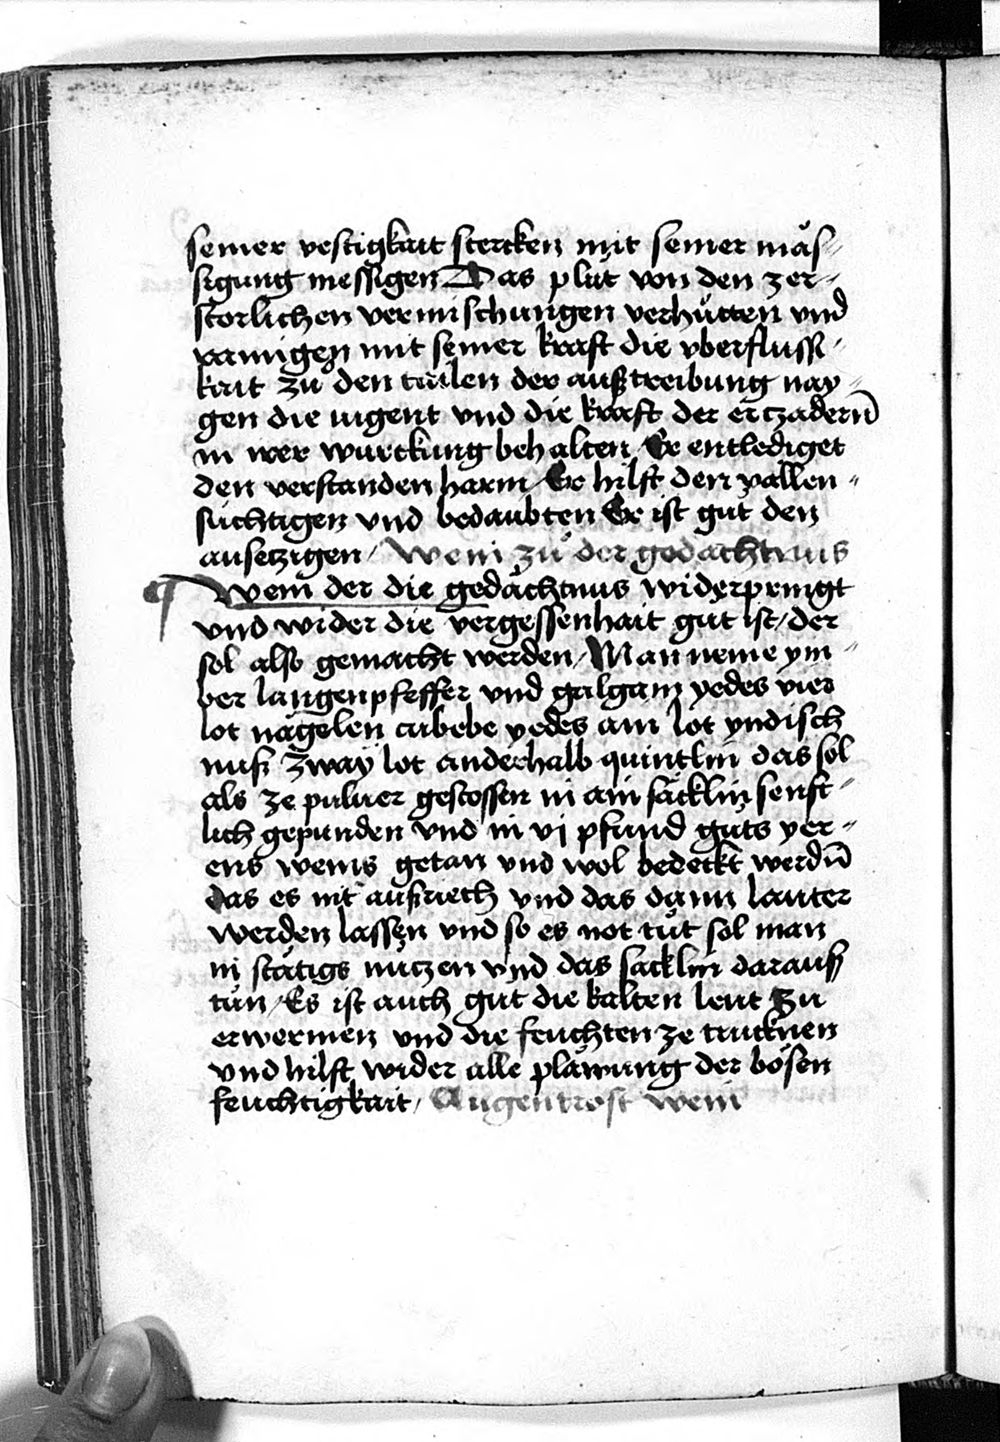 seiner vestigkait stercken mit seiner mäs-
sigung messigen Das plůt von den zer-
storlichen vermischungen verhůtten vnd
raimigen mit seiner kraft die vberflussi-
kait zů den tailen der außtreibung nay-
gen die iugent vnd die kraft der erczadern̄
in irer wurckung behalten / Er entlediget
den verstanden harm / Er hilft den vallen-
süchtigen vnd bedaubten Er ist gůt den
ausetzigen / Wein zů der gedächtnus
Wein der die gedächtnus widerpringt
vnd wider die vergessenhait gut ist / der
sol also gemacht werden / Man neme ym-
ber langenpfeffer vnd galgam yedes vier
lot nägelen cubebe yedes ain lot yndisch
nuß zway lot anderhalb quintlin das sol
als ze puluer gestossen in ain säcklin senft-
lich gepunden vnd in vj pfund gůts ver-
ens weins getan vnd wol bedeckt werdn̄
das es nit außriech vnd das dann lauter
werden lassen vnd so es not tůt sol man
in stätigs nutzen vnd das säcklin darauß
tůn / Es ist auch gůt die kalten leut zu
erwermen vnd die feuchten ze trucknen
vnd hilft wider alle pläwung der bösen
feuchtigkait / Augentrost wein